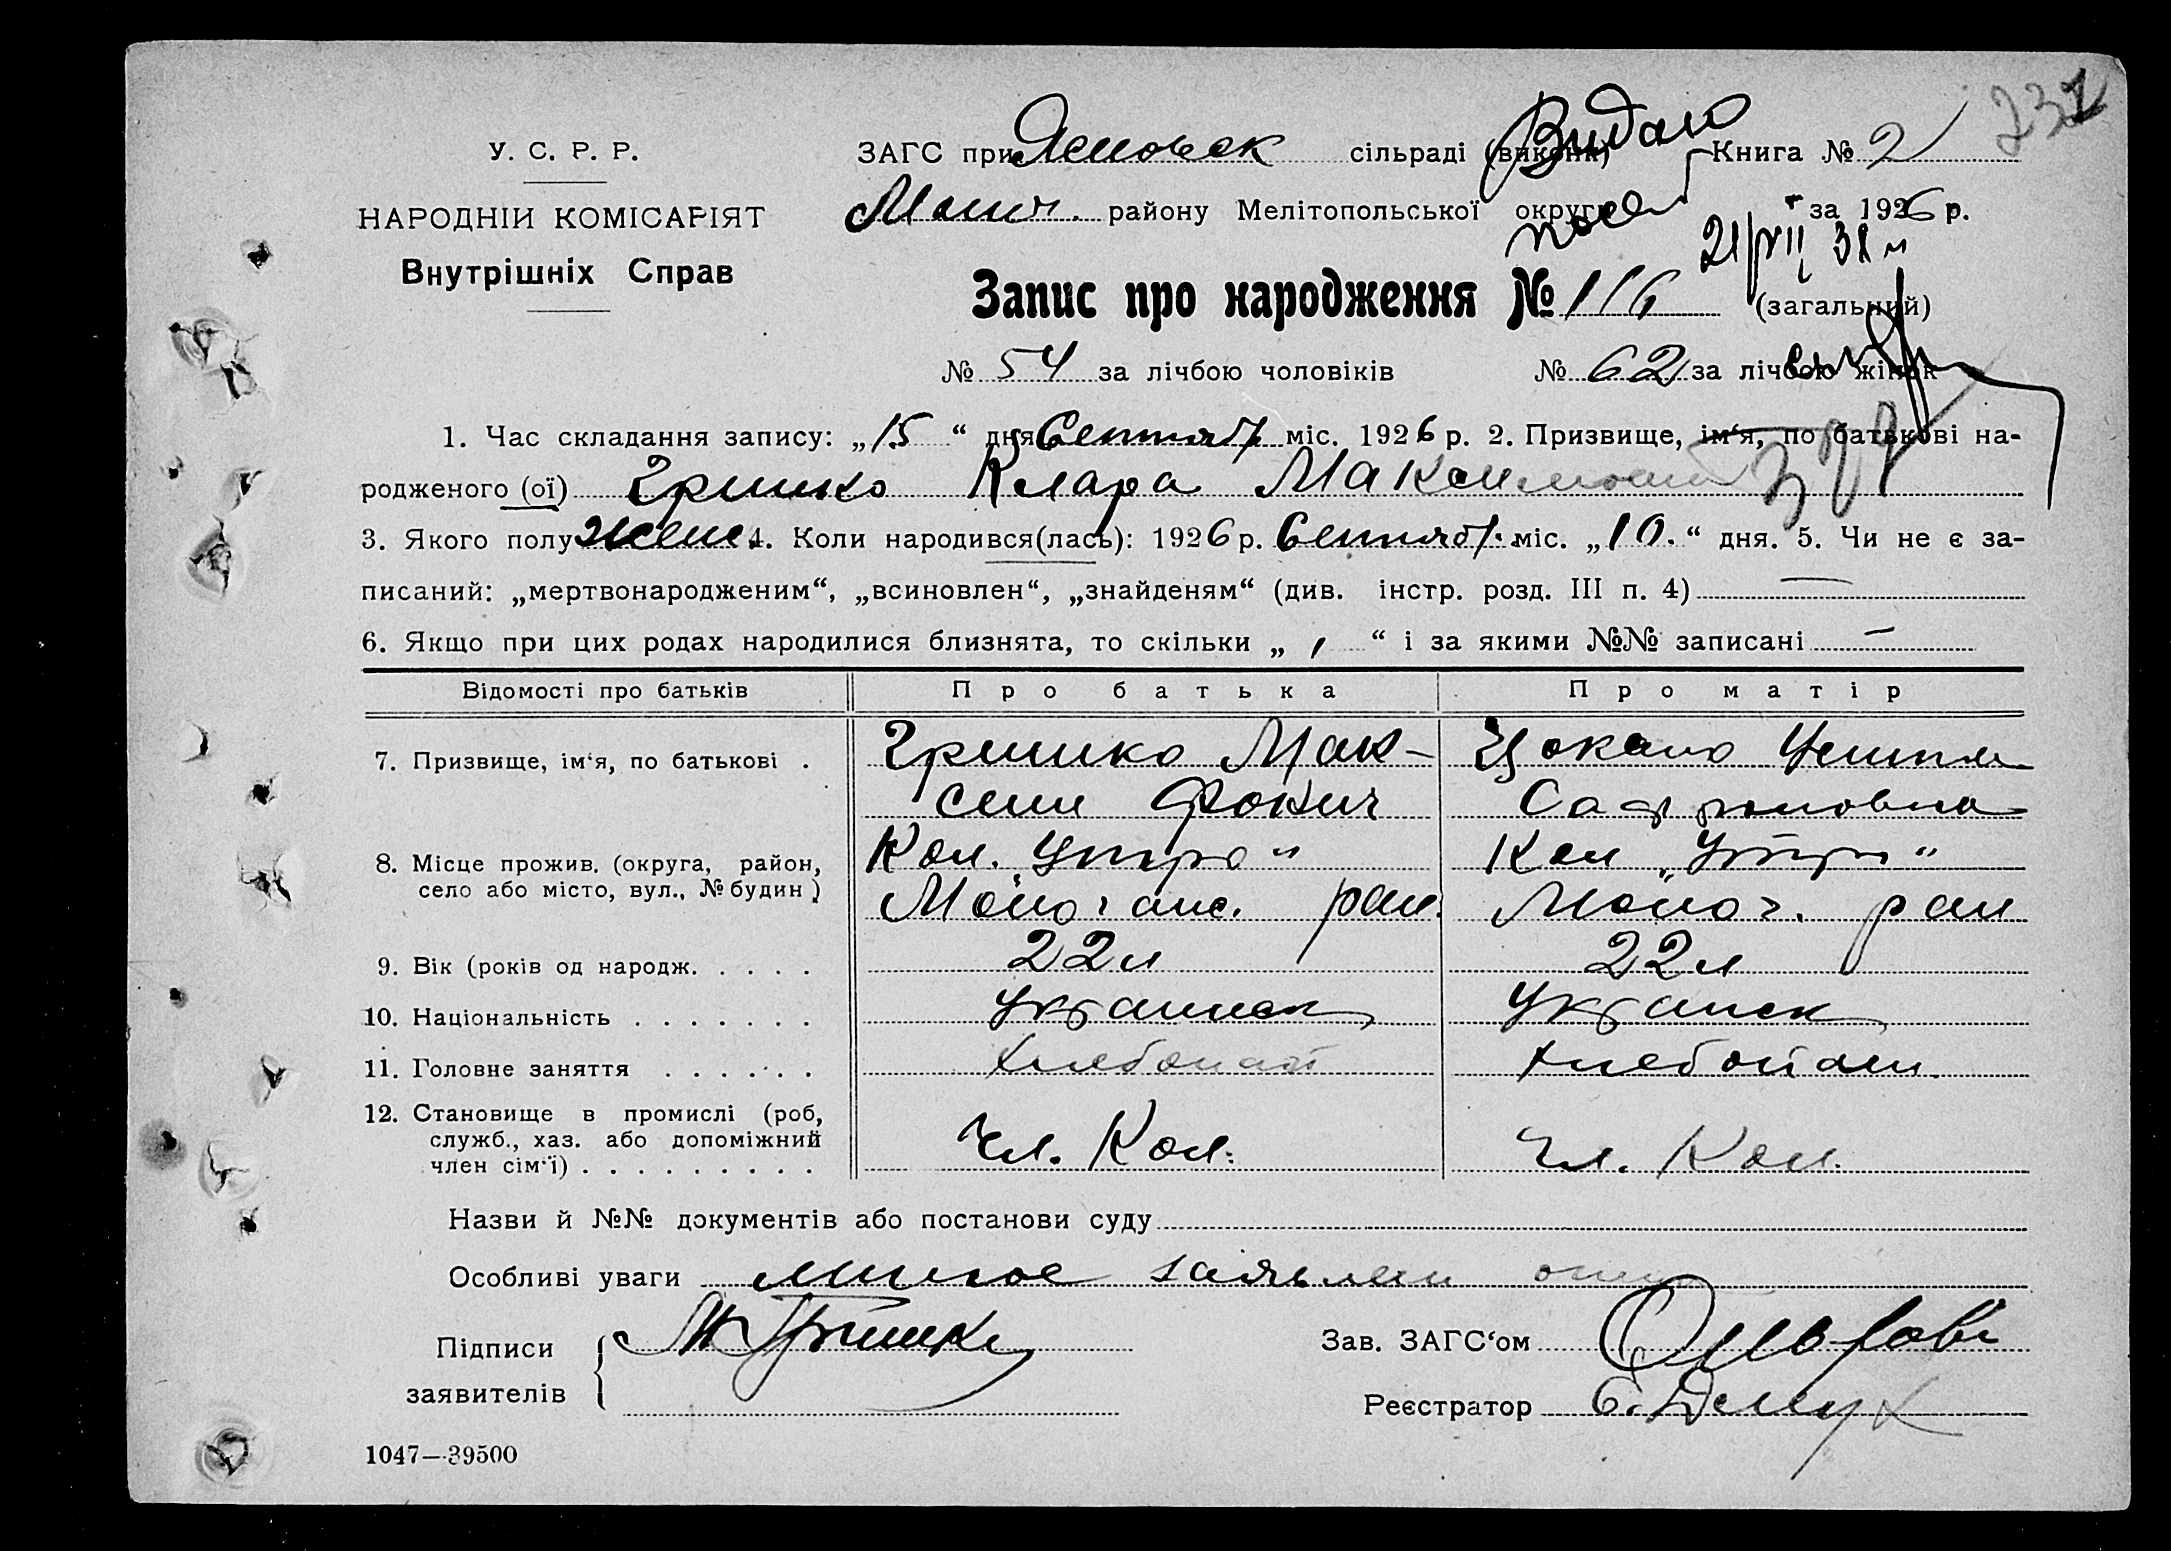 237
У. С. Р. Р.
НАРОДНІЙ КОМІСАРІЯТ
Внутрішніх Справ
ЗАГС при сільраді (викони) Видано Книга № 2
району Мелітопольської округи за 1926 р.
21/VII 38
Запис про народження № 116 (загальний)
№ 54 за лічбою чоловіків № 62 за лічбою жінок
1. Час складання запису: „15“ дня Сентябр міс. 1926 р. 2. Призвище, ім‘я, по батькові на-
родженого (ої) Гришко Клара Максимовна
3. Якого полу Жен. 4. Коли народився(лась): 1926 р. Сентябр. міс. „10.“ дня. 5. Чи не є за-
писаний: „мертвонародженим“, „всиновлен“, „знайденям“ (див. інстр. розд. III п. 4) —
6. Якщо при цих родах народилися близнята, то скільки „ “ і за якими №№ записані —
Відомості про батьків Про батька Про матір
7. Призвище, ім‘я, по батькові . Гришко Мак- Цокало Устия
сим Фокич
8. Місце прожив. (округа, район, Ком. „Утро“ Ком „Утро“
село або місто, вул., № будин.) рай. рай
9. Вік (років од народж. . . . . 22 л 22 л
10. Національність . . . . . . . Украинск Украинск
11. Головне заняття . . . . . . Хлебопаш Хлебопаш.
12. Становище в промислі (роб,
служб., хаз. або допоміжний Чл. Ком. Чл. Ком.
член сім‘ї) . . . . . . . . . .
Назви й №№ документів або постанови суду
Особливі уваги личное заявлен отца
Підписи М Гришко Зав. ЗАГС‘ом
заявителів Реєстратор
1047—39500